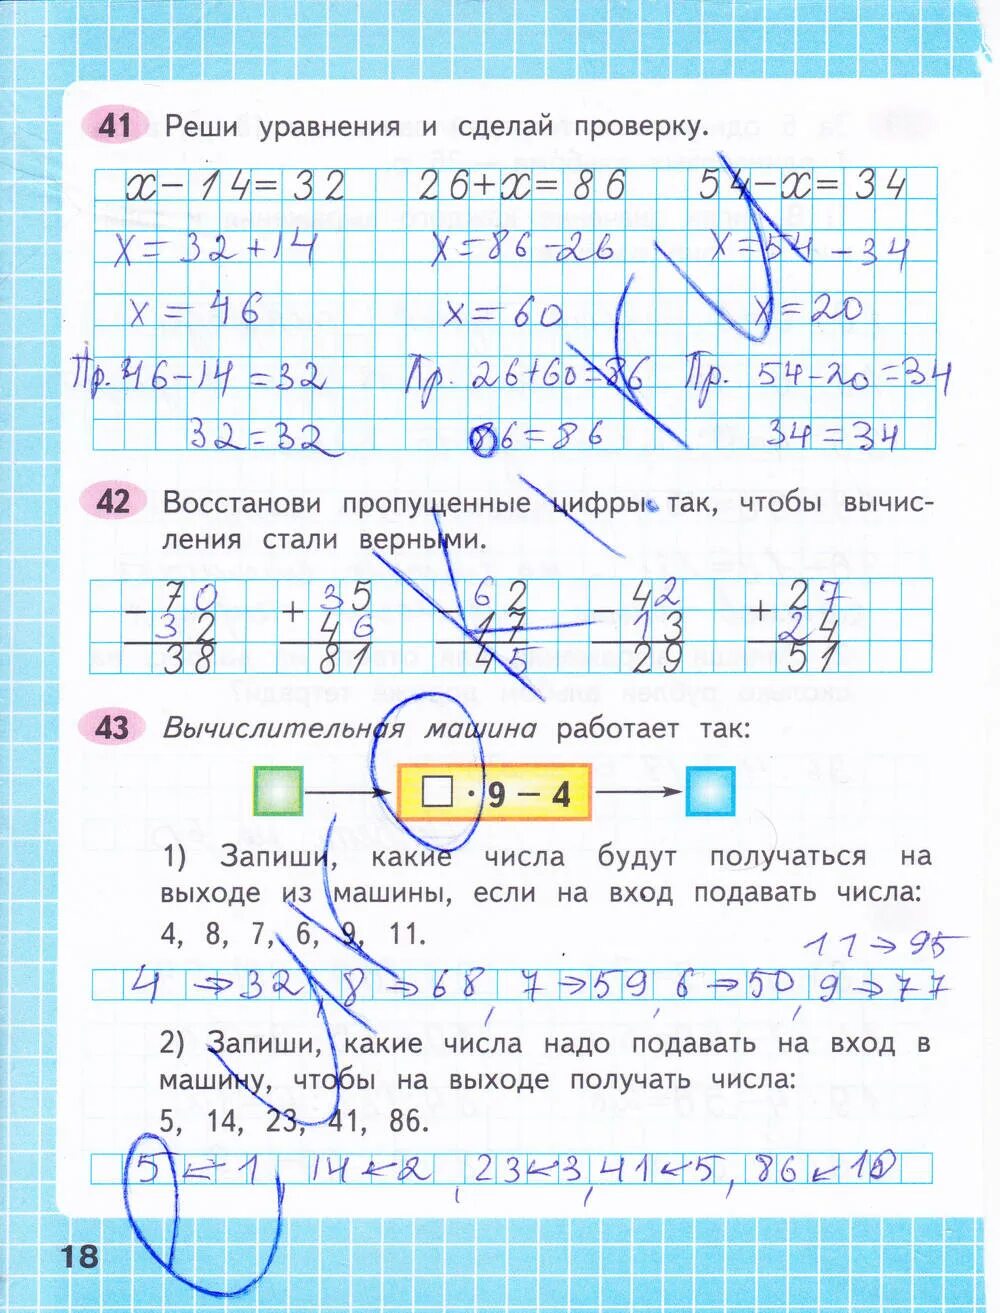 41 Реши уравнения и сделай проверку.
x − 14 = 32 26 + x = 86 54 − x = 34
x = 32 + 14 x = 86 − 26 x = 54 − 34
x = 46 x = 60 x = 20
Пр. 46 − 14 = 32 Пр. 26 + 60 = 86 Пр. 54 − 20 = 34
32 = 32 86 = 86 34 = 34
42 Восстанови пропущенные цифры так, чтобы вычис-
ления стали верными.
− 70 + 35 − 62 − 42 + 27
32 46 17 13 24
38 81 45 29 51
43 Вычислительная машина работает так:
□ · 9 − 4
1) Запиши, какие числа будут получаться на
выходе из машины, если на вход подавать числа:
4, 8, 7, 6, 9, 11.
11 → 95
4 → 32, 8 → 68, 7 → 59, 6 → 50, 9 → 77
2) Запиши, какие числа надо подавать на вход в
машину, чтобы на выходе получать числа:
5, 14, 23, 41, 86.
5 ← 1, 14 ← 2, 23 ← 3, 41 ← 5, 86 ← 10
18